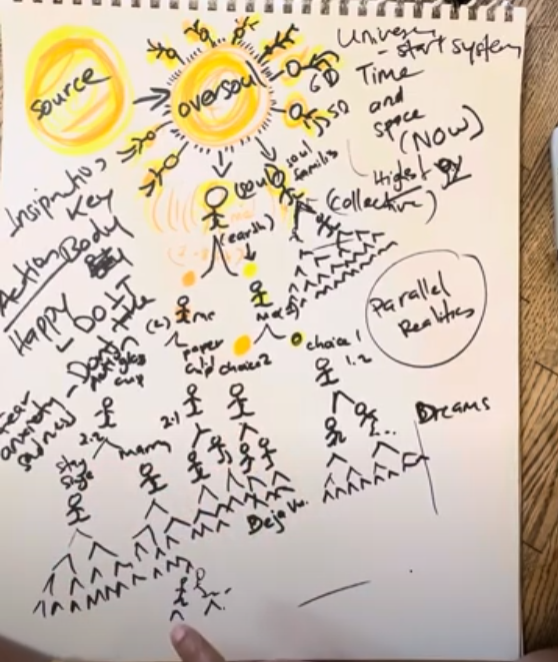 Universe
- start system
Source
oversoul
6D
5D
Time
and
space
(NOW)
Highest
(Collective)
soul
families
(soul)
(earth)
Insipration
Key
Action
Body
Happy
- Do it
take
Don't
cup
Fear
anxiety
sadness
me
paper
cup
choice 2
choice 1
1.2
Parallel
Realities
2.2
2.1
stay
single
marry
Dreams
Deja Vu.